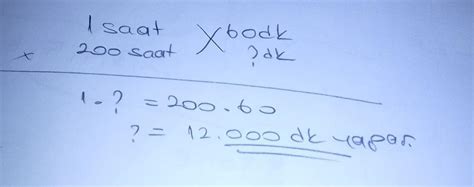 1 saat 60dk
x 200 saat ? dk
1.? = 200.60
? = 12.000 dk yapar.